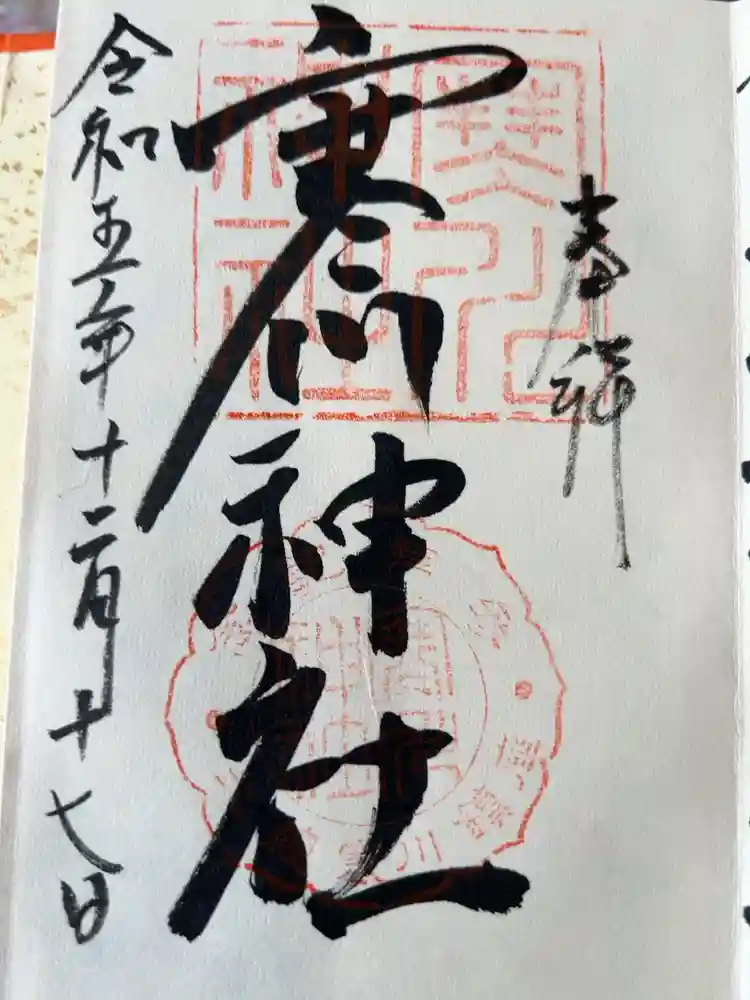 奉拝
寒川神社
寒川
神社
令和五年十二月十七日